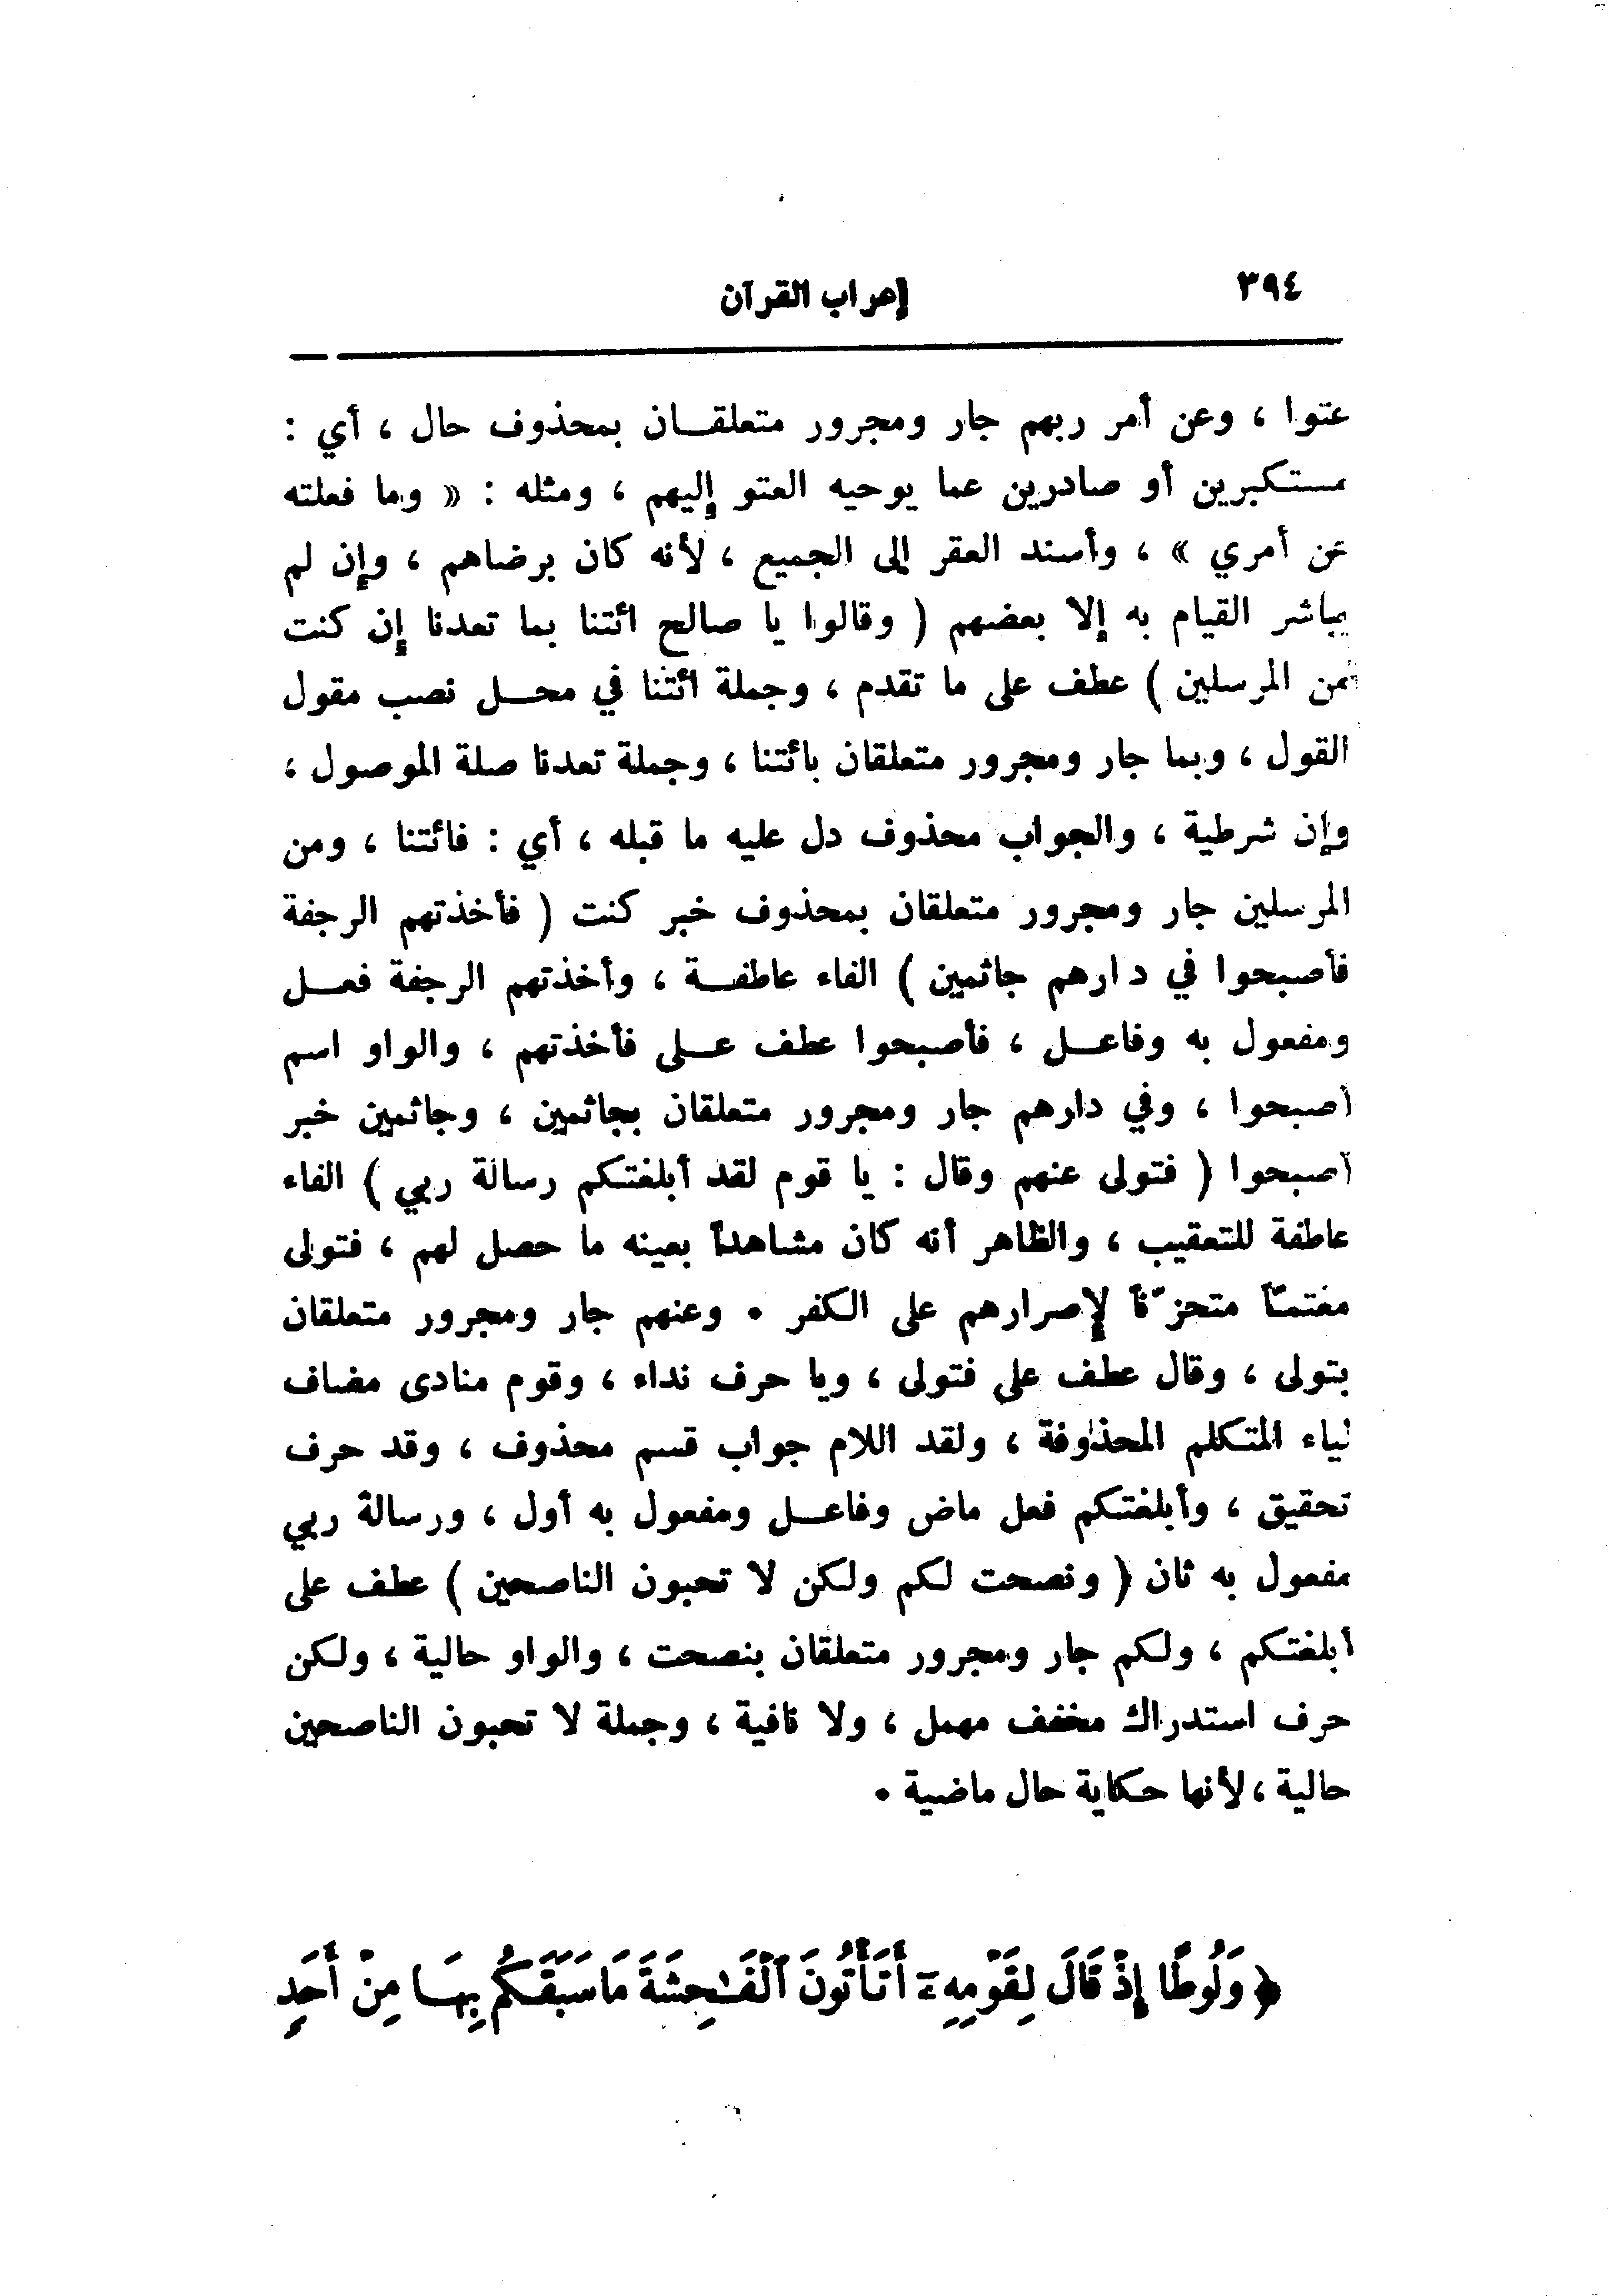 ٣٩٤
إعراب القرآن
عتوا ، وعن أمر ربهم جار ومجرور متعلقــان بمحذوف حال ، أي :
مستكبرين أو صادرين عما يوحيه العتو إليهم ، ومثله : « وما فعلته
عن أمري » ، وأسند العقر إلى الجميع ، لأنه كان برضاهم ، وإن لم
يباشر القيام به إلا بعضهم ( وقالوا يا صالح ائتنا بما تعدنا إن كنت
من المرسلين ) عطف على ما تقدم ، وجملة ائتنا في محــل نصب مقول
القول ، وبما جار ومجرور متعلقان بائتنا ، وجملة تعدنا صلة الموصول ،
وإن شرطية ، والجواب محذوف دل عليه ما قبله ، أي : فائتنا ، ومن
المرسلين جار ومجرور متعلقان بمحذوف خبر كنت ( فأخذتهم الرجفة
فأصبحوا في دارهم جاثمين ) الفاء عاطفــة ، وأخذتهم الرجفة فعــل
ومفعول به وفاعــل ، فأصبحوا عطف عــلى فأخذتهم ، والواو اسم
أصبحوا ، وفي دارهم جار ومجرور متعلقان بجاثمين ، وجاثمين خبر
أصبحوا ( فتولى عنهم وقال : يا قوم لقد أبلغتكم رسالة ربي ) الفاء
عاطفة للتعقيب ، والظاهر أنه كان مشاهداً بعينه ما حصل لهم ، فتولى
مغتمّاً متحزّناً لإصرارهم على الكفر . وعنهم جار ومجرور متعلقان
بتولى ، وقال عطف على فتولى ، ويا حرف نداء ، وقوم منادى مضاف
لياء المتكلم المحذوفة ، ولقد اللام جواب قسم محذوف ، وقد حرف
تحقيق ، وأبلغتكم فعل ماض وفاعــل ومفعول به أول ، ورسالة ربي
مفعول به ثان ( ونصحت لكم ولكن لا تحبون الناصحين ) عطف على
أبلغتكم ، ولكم جار ومجرور متعلقان بنصحت ، والواو حالية ، ولكن
حرف استدراك مخفف مهمل ، ولا نافية ، وجملة لا تحبون الناصحين
حالية ، لأنها حكاية حال ماضية .
﴿ وَلُوطًا إِذْ قَالَ لِقَوْمِهِۦٓ أَتَأْتُونَ ٱلْفَـٰحِشَةَ مَا سَبَقَكُم بِهَـا مِنْ أَحَدٍ